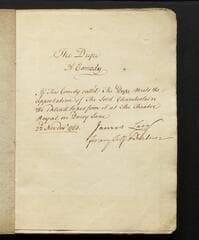 The Dupe
A Comedy
If this Comedy called The Dupe meets the
approbation of the Lord Chamberlain
we intend to perform it at the Theatre
Royal in Drury Lane
Novr. 1763.
James Lacy